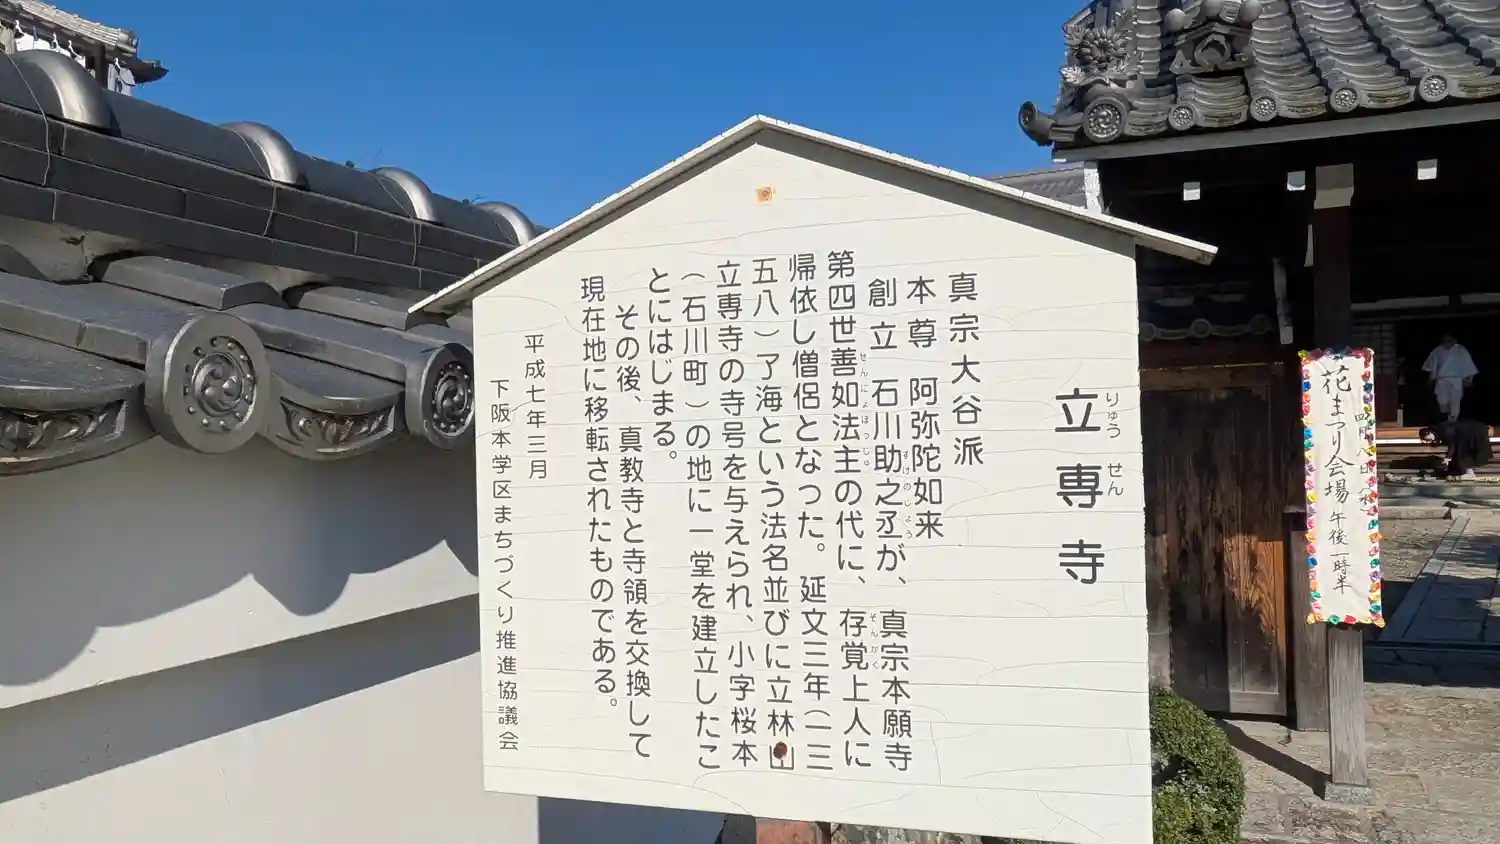 立専寺
りゅうせん
真宗大谷派
本尊 阿弥陀如来
創立 石川助之丞が、真宗本願寺
すけのじょう
第四世善如法主の代に、存覚上人に
ぜんにょほっしゅ
ぞんかく
帰依し僧侶となった。延文三年(一三
五八)了海という法名並びに立林山
立専寺の寺号を与えられ、小字桜本
(石川町)の地に一堂を建立したこ
とにはじまる。
その後、真教寺と寺領を交換して
現在地に移転されたものである。
平成七年三月
下阪本学区まちづくり推進協議会
花まつり会場 午後一時半